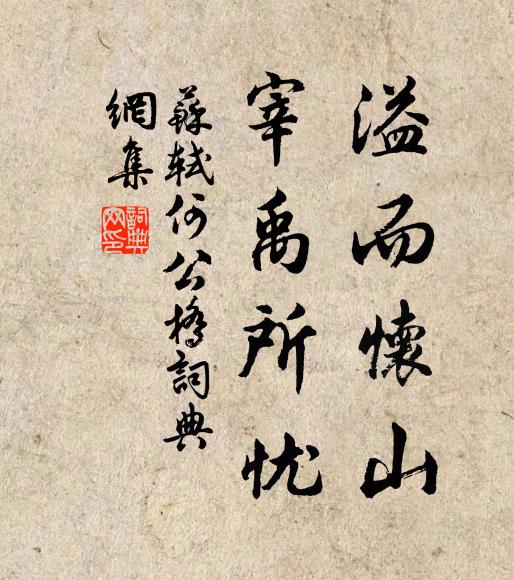 溢而懷山
宰禹所忧
蘇軾何公橋詞典
網集
詞典
网印